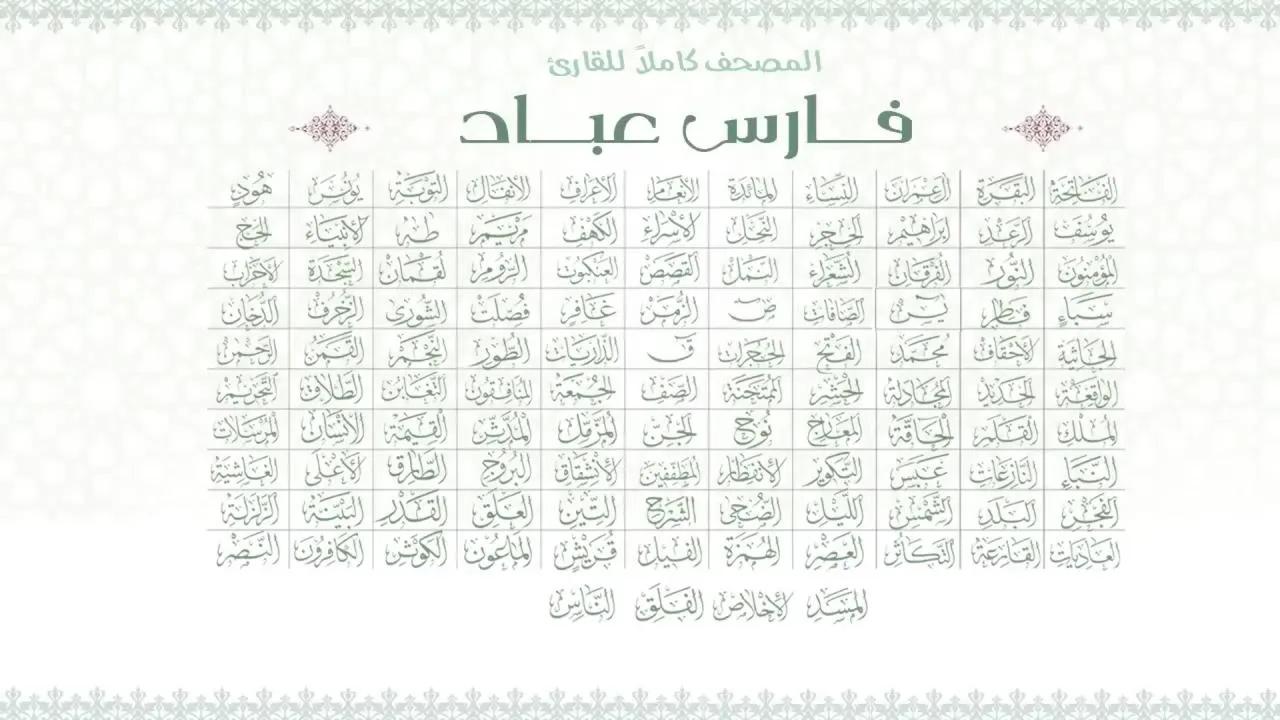 المصحف كاملاً للقارئ
فارس عباد
الفاتحة البقرة آل عمران النساء المائدة الأنعام الأعراف الأنفال التوبة يونس هود
يوسف الرعد إبراهيم الحجر النحل الإسراء الكهف مريم طه الأنبياء الحج
المؤمنون النور الفرقان الشعراء النمل القصص العنكبوت الروم لقمان السجدة الأحزاب
سبأ فاطر يس الصافات ص الزمر غافر فصلت الشورى الزخرف الدخان
الجاثية الأحقاف محمد الفتح الحجرات ق الذاريات الطور النجم القمر الرحمن
الواقعة الحديد المجادلة الحشر الممتحنة الصف الجمعة المنافقون التغابن الطلاق التحريم
الملك القلم الحاقة المعارج نوح الجن المزمل المدثر القيامة الإنسان المرسلات
النبأ النازعات عبس التكوير الانفطار المطففين الانشقاق البروج الطارق الأعلى الغاشية
الفجر البلد الشمس الليل الضحى الشرح التين العلق القدر البينة الزلزلة
العاديات القارعة التكاثر العصر الهمزة الفيل قريش الماعون الكوثر الكافرون النصر
المسد الإخلاص الفلق الناس